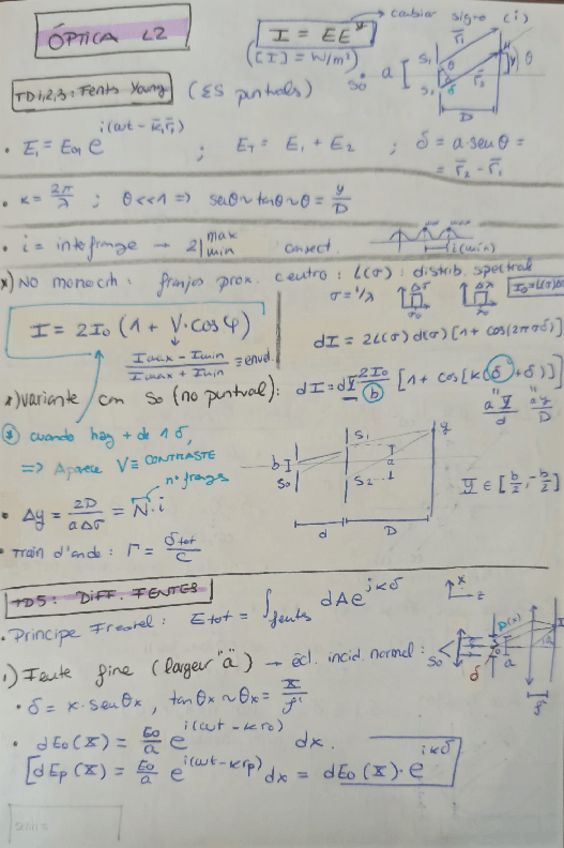 ÓPTICA L2
I = EE*
→ cambiar signo (i)
([I] = W/m²)
TD1,2,3: Fents Young (ES puntuals)
S₁ S₂ S₀ a r̄₁ r̄₂ θ δ y D
• E₁ = E₀₁ e^{i(ωt - k̄₁r̄₁)} ; E_T = E₁ + E₂ ; δ = a·senθ =
= r̄₂ - r̄₁
• κ = 2π/λ ; θ<<1 => senθ ~ tanθ ~ θ = y/D
• i = interfrange → 2|max min consect. i(min)
*) NO monocrh: franjas prox. centro: L(σ): distrib. spectral
σ = 1/λ Δσ σ₀ Δλ
I = 2I₀ (1 + V·cosφ)
dI = 2L(σ)d(σ)[1 + cos(2πσδ)]
Imax - Imin / Imax + Imin ≡ envd.
*) Variante con S₀ (no puntual): dI = dY 2I₀/b [1 + cos[k(δ' + δ)]]
a Y/d ay/D
* cuando hay + de 1 δ,
=> Aparece V ≡ CONTRASTE
nº franjas
b S₀ S₁ S₂ a y d D
Y ∈ [b/2, -b/2]
• Δy = 2D/aΔσ = N·i
• Train d'onde: Γ = δtot/c
TD5: DIFF. FENTES
• Principe Fresnel: Etot = ∫fentes dA e^{jκδ}
x z
1) Fente fine (largeur "a") → écl. incid normal:
S₀ δ a P(x) f'
• δ = x·senθx, tanθx ~ θx = X/f'
• dE₀(X) = E₀/a e^{i(ωt - κr₀)} dx.
[dEp(X) = E₀/a e^{i(ωt - κrp)} dx = dE₀(X)·e^{iκδ}